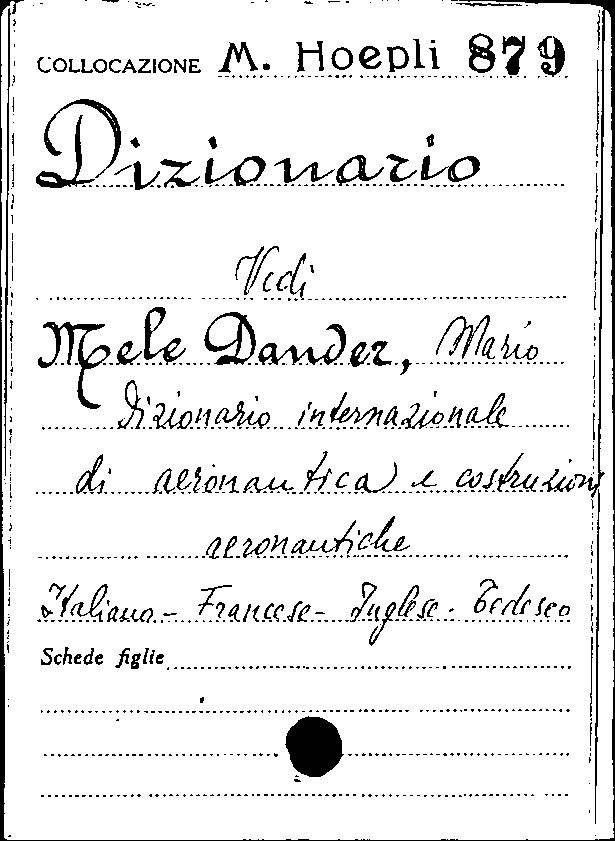 COLLOCAZIONE M. Hoepli 879
Dizionario
Vedi
Mele Dander, Mario
Dizionario internazionale
di aeronautica e costruzioni
aeronautiche
Italiano - Francese - Inglese - Tedesco
Schede figlie